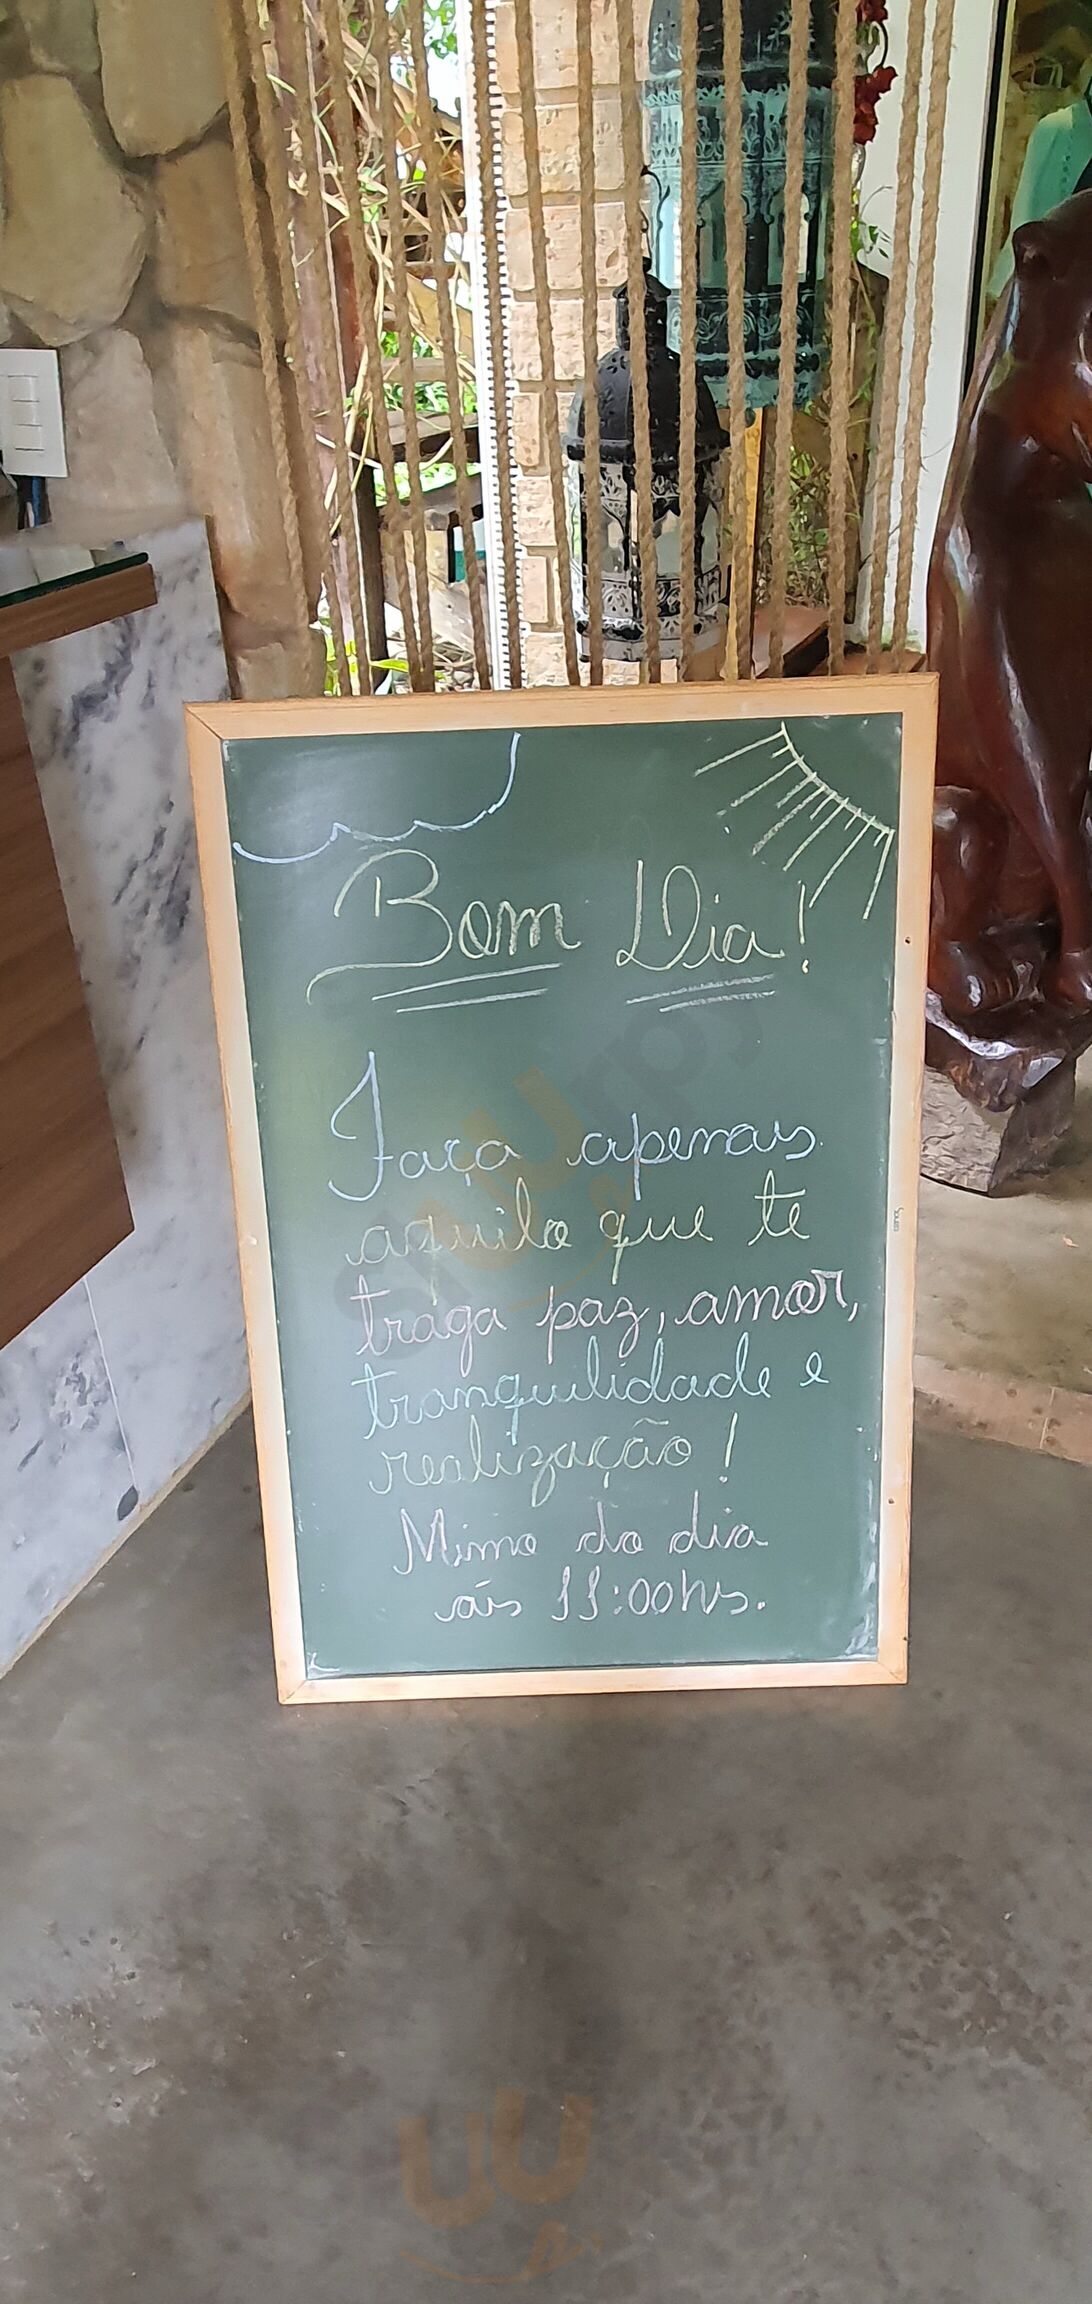 Bom Dia!
Faça apenas
aquilo que te
traga paz, amor,
tranquilidade e
realização!
Mimo do dia
às 11:00hs.